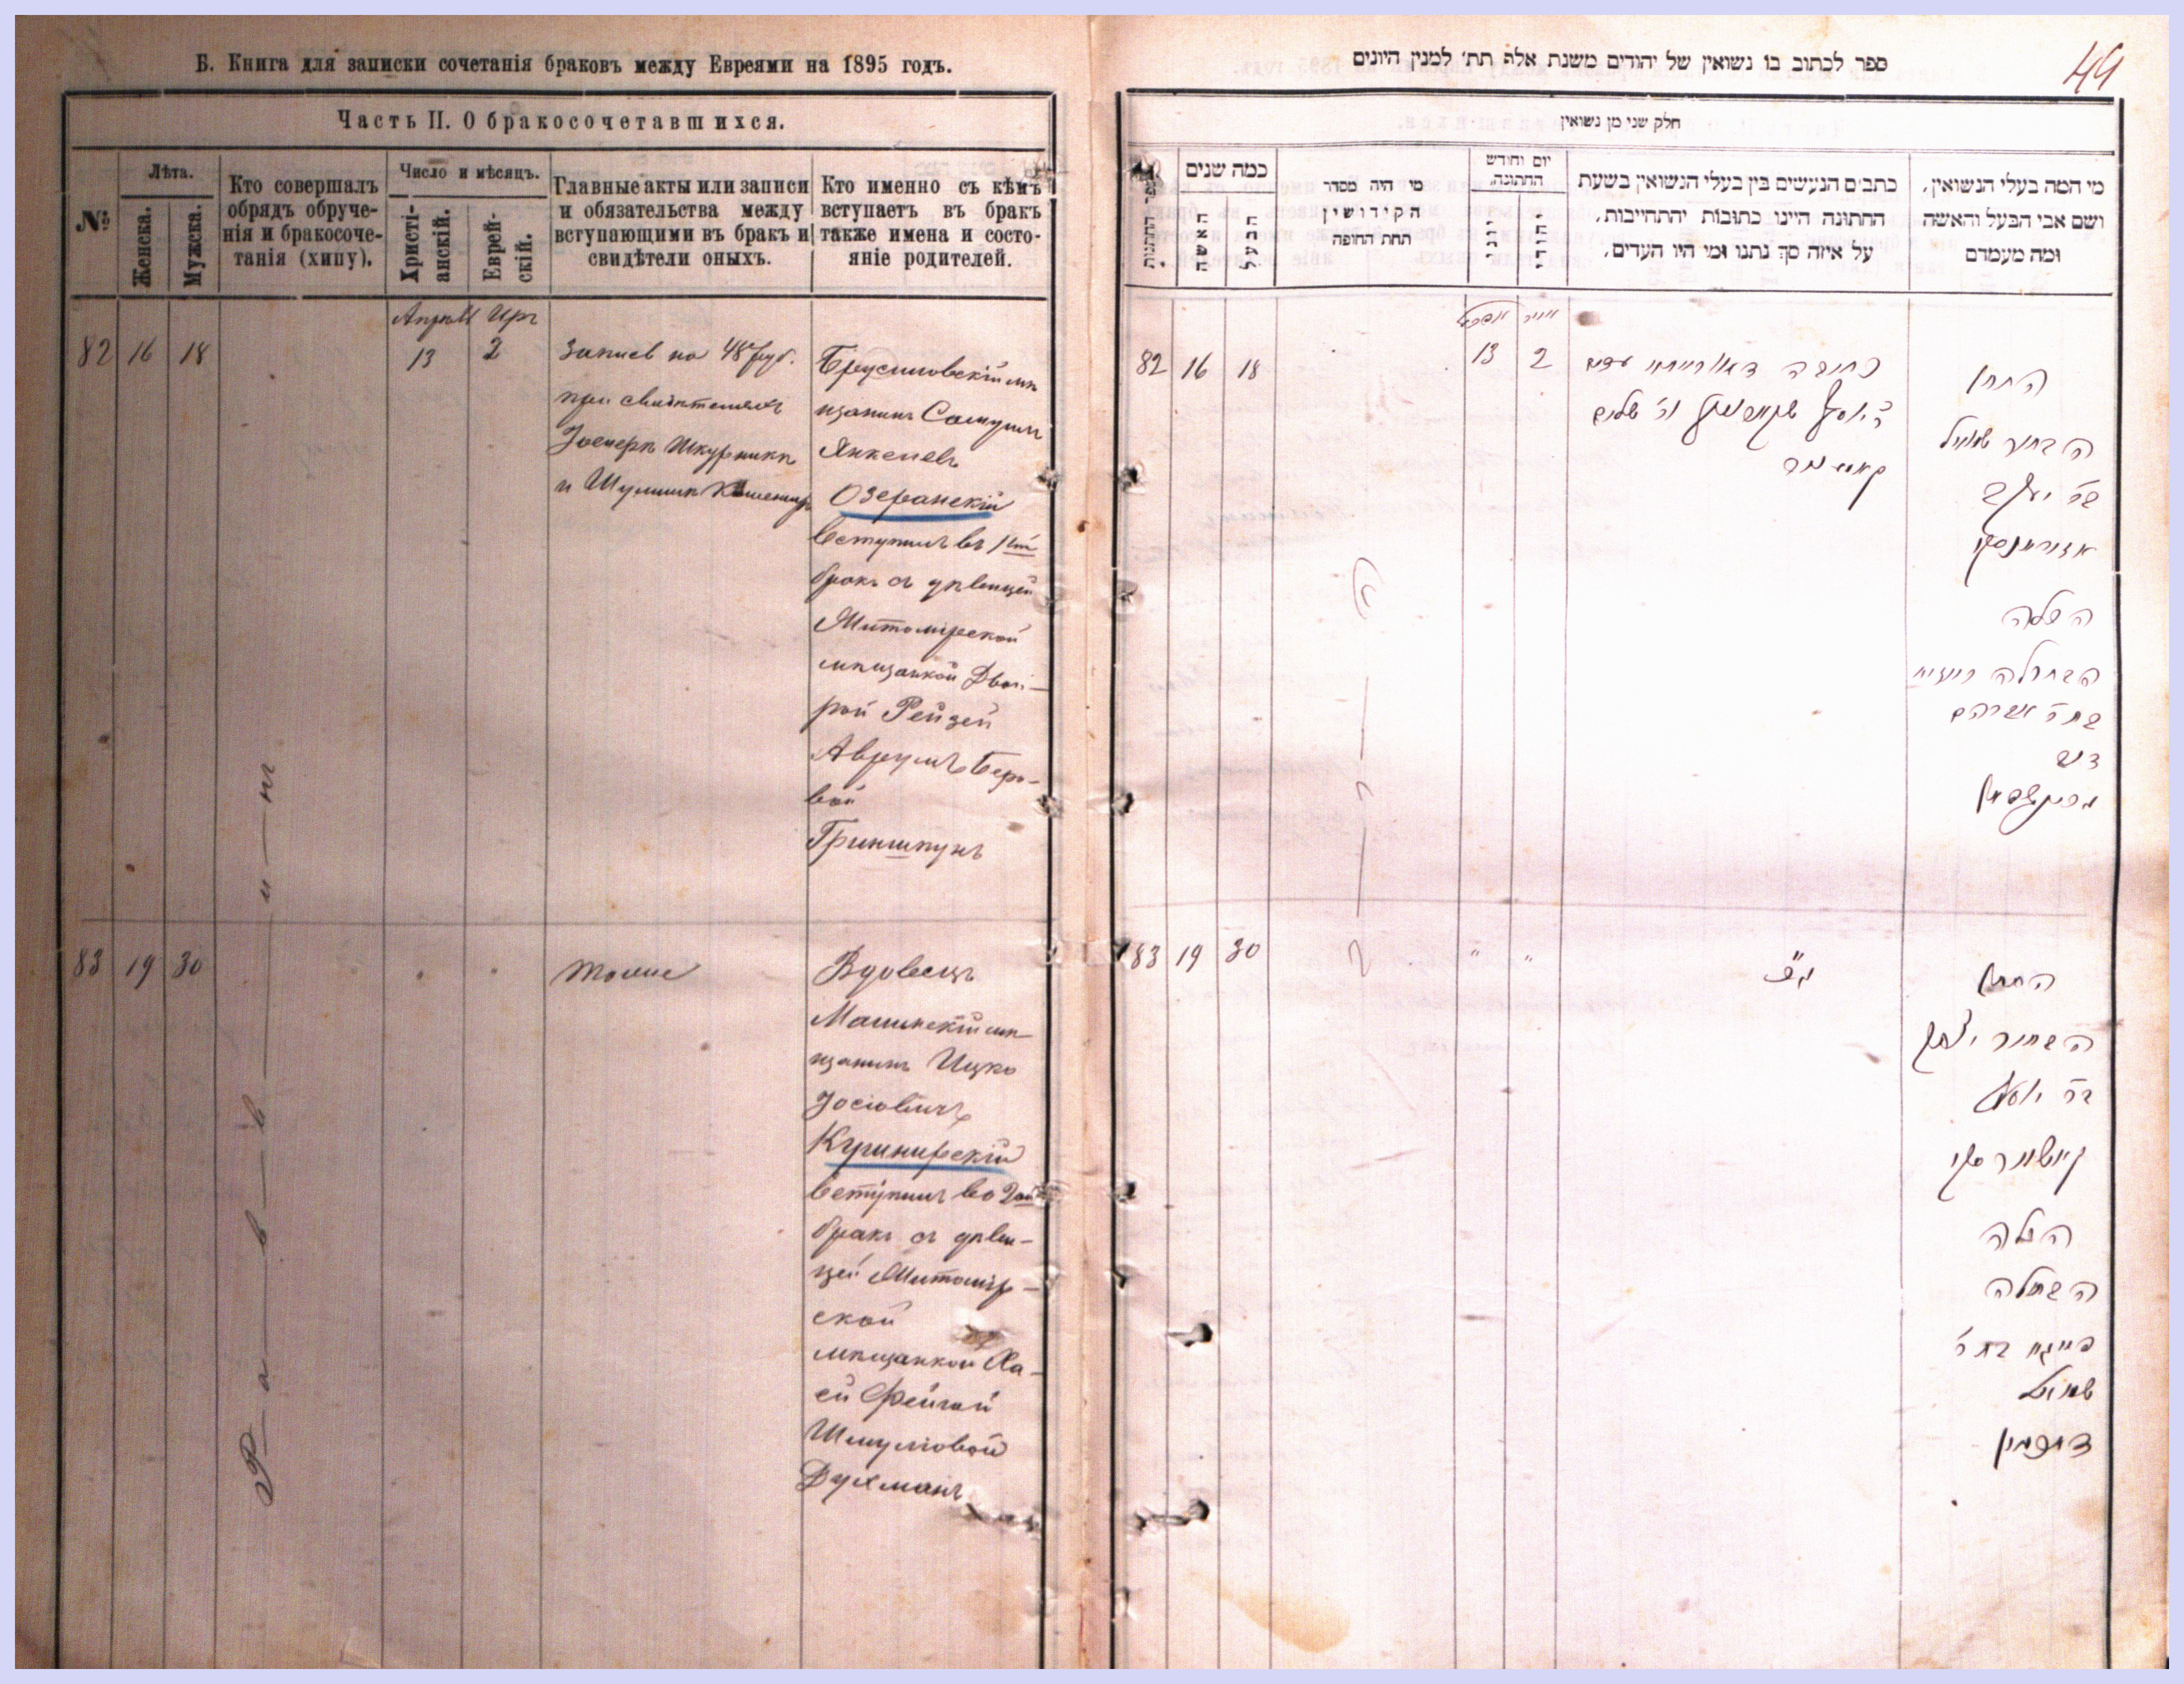 Б. Книга для записки сочетанія браковъ между Евреями на 1895 годъ.
Часть II. О бракосочетавшихся.
№
Лѣта.
Женска.
Мужска.
Кто совершалъ
обрядъ обруче-
нія и бракосоче-
танія (хипу).
Число и мѣсяцъ.
Христі-
анскій.
Еврей-
скій.
Главные акты или записи
и обязательства между
вступающими въ бракъ и
свидѣтели оныхъ.
Кто именно съ кѣмъ
вступаетъ въ бракъ
также имена и состо-
яніе родителей.
Апрѣль Иръ
82 16 18 13 2
Запись на 48 руб.
при свидѣтеляхъ
Іосифъ Шкурникъ
и
Брусиловскій мѣ
щанинъ Самуилъ
Янкелевъ
Озеранскій
вступилъ въ 1ый
бракъ съ дѣвицей
Житомірской
мѣщанкой Двой-
рой Рейзей
Аврумъ Беро-
вой
Гриншпунъ
83 19 30
тоже
Вдовецъ
мѣ
щанинъ Ицко
Іосіовичъ
Кушнирскій
вступилъ во 2ой
бракъ съ дѣви-
цей Житомір-
ской
мѣщанкой Ха-
ей Фейгой
Шмуліовой
Духманъ
Раввинъ
ספר לכתוב בו נשואין של יהודים משנת אלף תת׳ למנין היונים
49
חלק שני מן נשואין
כמה שנים
האשה
הבעל
מי היה מסדר
הקידושין
תחת החופה
יום וחודש
החתונה.
יוני
יהודי
כתבים הנעשים בין בעלי הנשואין בשעת
החתונה היינו כתובות יהתחייבות,
על איזה סך נתנו ומי היו העדים,
מי המה בעלי הנשואין,
ושם אבי הבעל והאשה
ומה מעמדם
אפריל אייר
82 16 18 13 2
כתובה דאורייתא עדים
ה׳ יוסף שקורניק וה׳ שלום
החתן
הבחור שמואל
בר׳ יעקב
אזוראנסקי
הכלה
הבתולה רייזא
בת ר׳ אברהם
דוב
גרינשפאן
83 19 30 " "
כנ״ל
החתן
הבחור יצחק
בר׳ יוסף
קושנירסקי
הכלה
הבתולה
פייגא בת ר׳
שמואל
דוכמאן